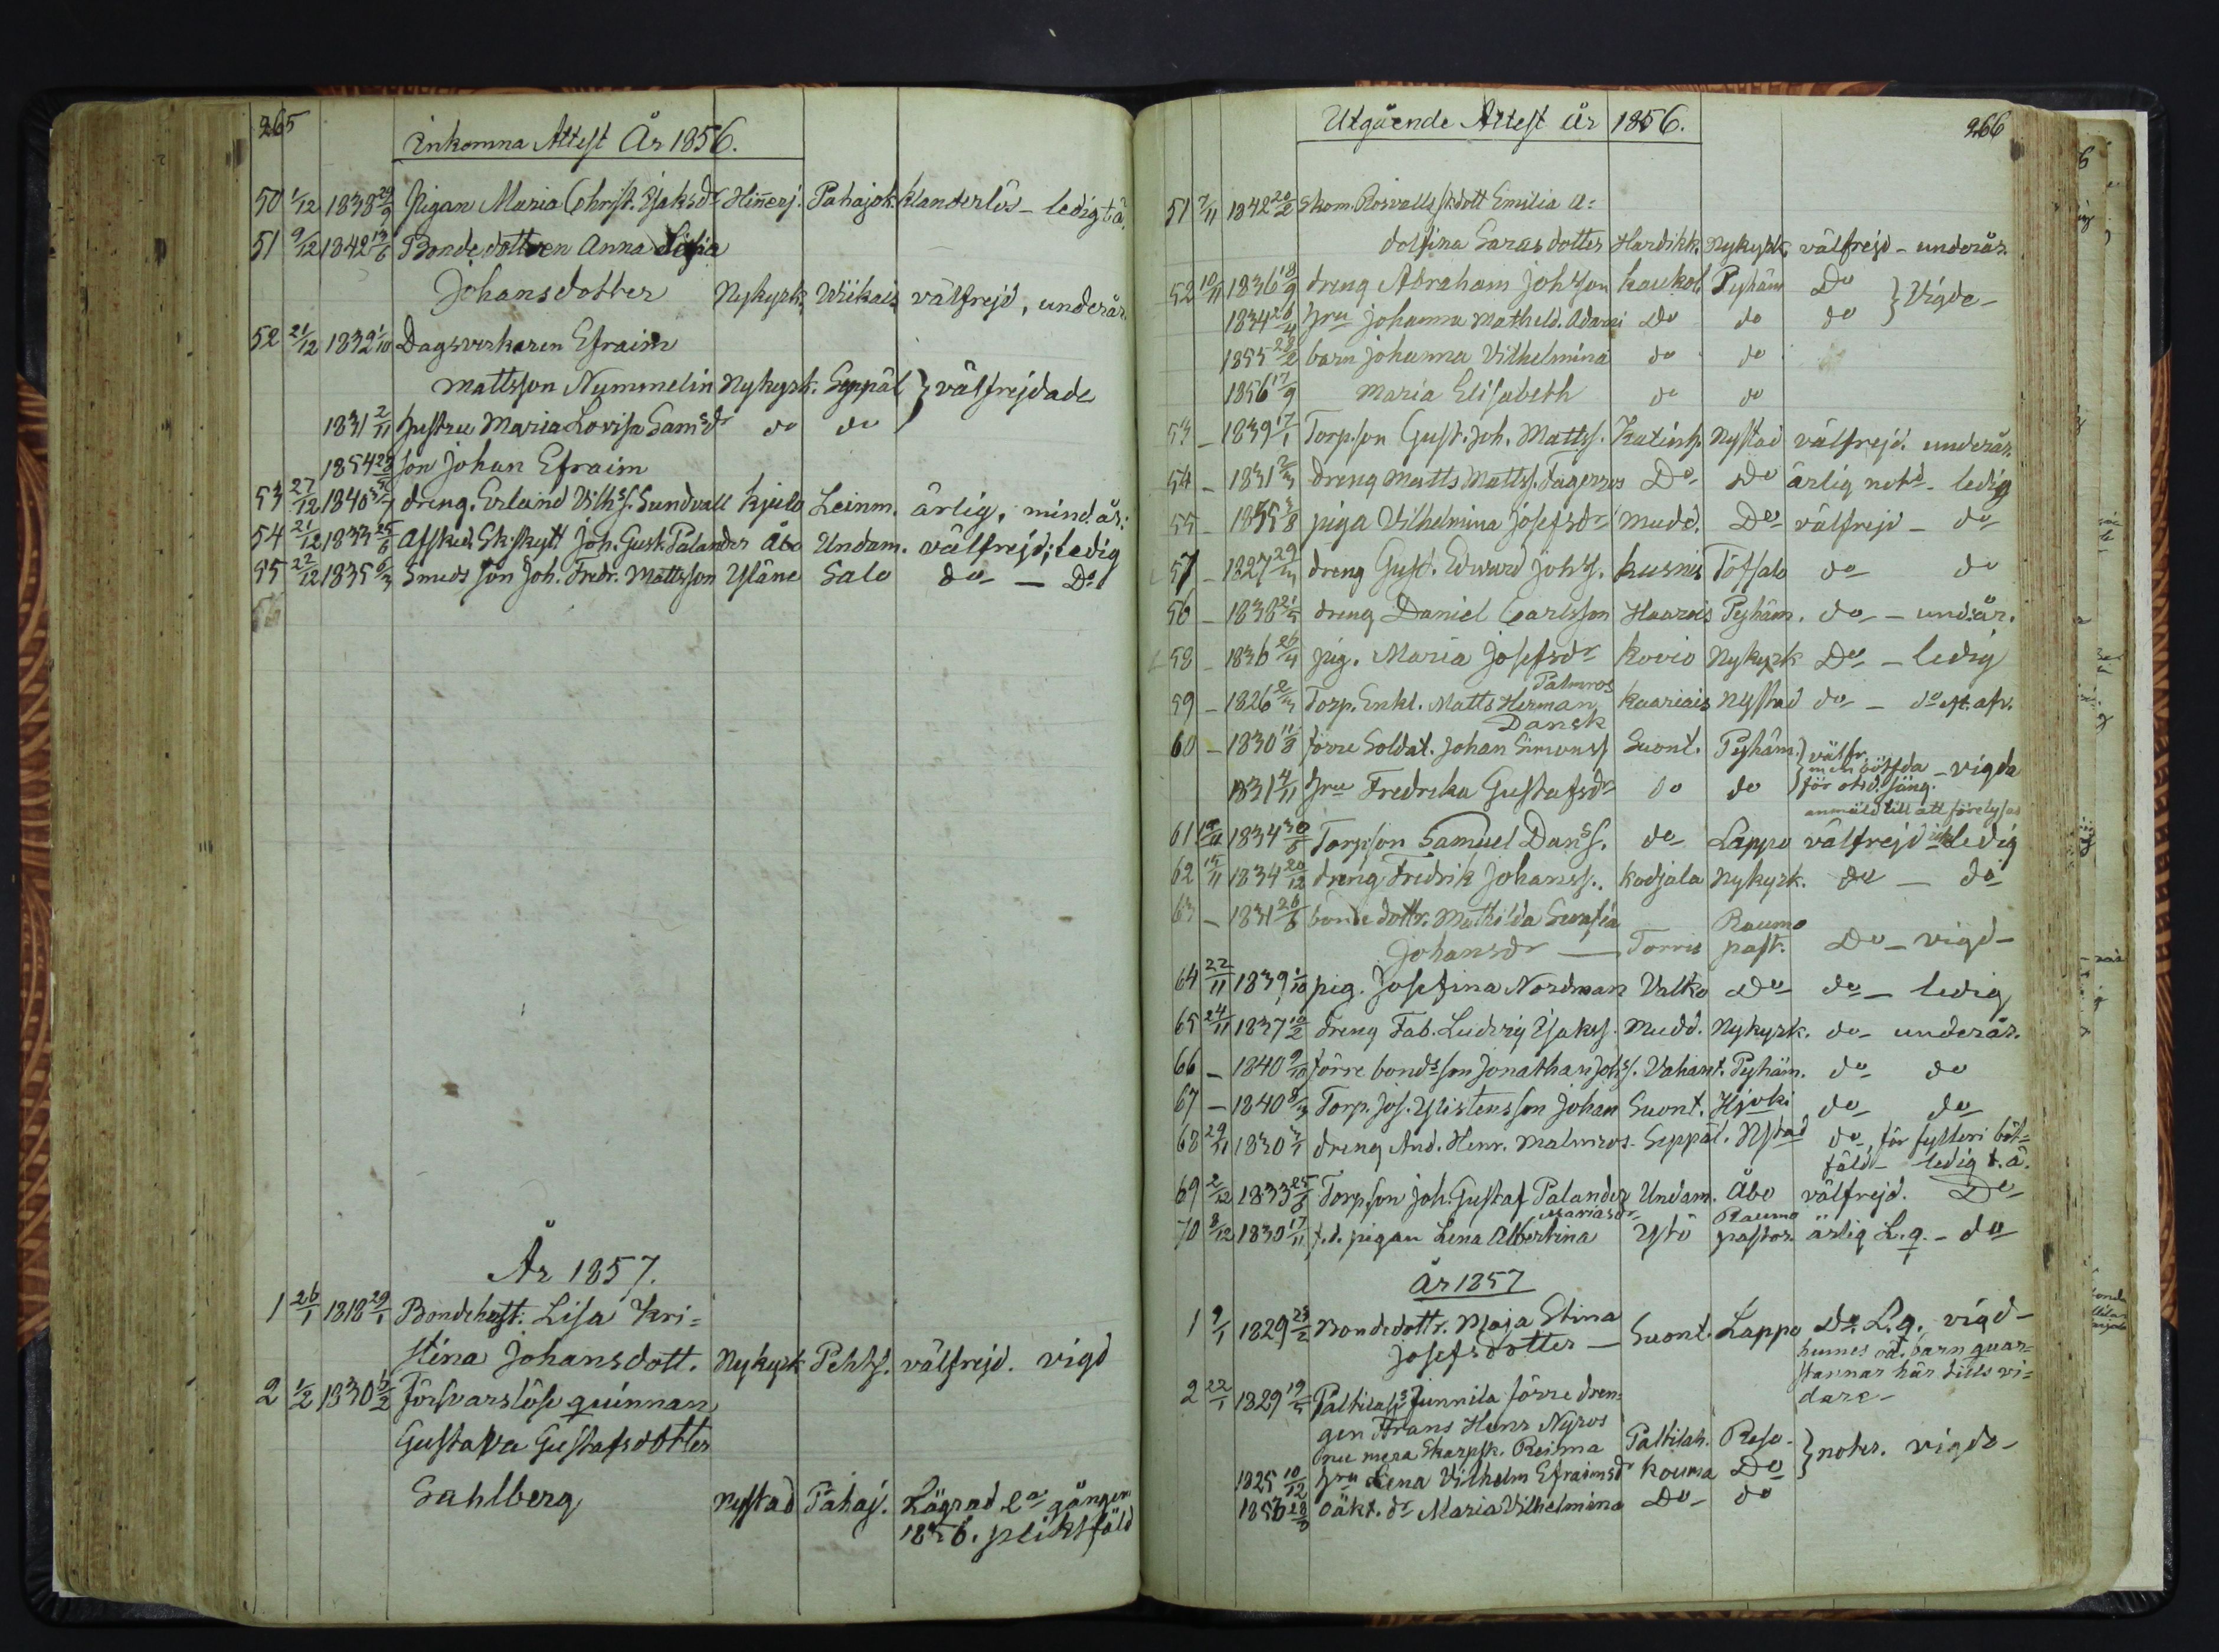 265
Inkomna Attest År 1856.
50 1/12 1838 29/9 Pigan Maria Christ. Isaksdr Hinnerj. Pahajok. klanderlös - ledig t.ä.
51 9/12 1842 13/6 Bondedottren Anna Lisa
Johansdotter Nykyrk. Wiikais välfrejd, underår.
52 21/12 1832 1/10 Dagsverkaren Efraim
Mattsson Nummelin Nykyrk. Seppäl } välfrejdade
1831 2/11 hustru Maria Lovisa Samsdr do do
1854 son Johan Efraim
53 27/12 1840 dreng. Erland Vilhs. Sundvall Kjulo Leinm. ärlig, mind.år:
54 21/12 1833 25/6 Afsked. Sk.skytt Joh. Gust. Palander Åbo Undam. välfrejd; ledig
55 22/12 1835 6/3 Smeds son Joh. Fredr. Mattsson Yläne Salo do - Do
År 1857.
1 26/1 1818 29/1 Bondehust: Lisa Kri=
stina Johansdott. Nykyrk Pehts. välfrejd. vigd
2 1/2 1830 5/2 Försvarslösa quinnan
Gustava Gustafsdotter
Sahlberg Nystad Pahaj. Lägrad 2a gången
1856. pliktfäld
266
Utgående Attest år 1856.
51 7/11 1842 20/2 Skom. Rosvalls st.dott Emilia A:
dolfina Sarasdotter Hardikk. Nykyrk välfrejd - underår.
52 10/11 1836 18/9 dreng Abraham Johsson Kaukol. Pyhäm Do } Vigde-
1834 26/4 hru Johanna Matheld. Adami Do do do
1855 28/2 barn Johanna Vilhelmina do do
1856 17/9 Maria Elisabeth do do
53 - 1839 17/1 Torp.son Gust. Joh. Mattss. Katinh. Nystad välfrejd. underår.
54 - 1831 2/3 dreng Matts Mattss. Fagerros Do Do ärlig notd - ledig
55 - 1835 3/8 piga Vilhelmina Josefsdr Mudd. Do välfrejd - do
57 - 1827 29/3 dreng Gust. Edward Johss. Kusnis Töfsalo do do
56 - 1838 21/5 dreng Daniel Carlsson Haarois Pyhäm. do - und.år.
58 - 1836 26/4 pig. Maria Josefsdr Kovio Nykyrk Do - ledig
Palmros
59 - 1826 2/3 Torp. Enkl. Matts Herman Kaariais Nystad do -
Dansk
60 - 1830 11/8 förre Soldat. Johan Simonss Suont. Pyhäm. } välfr.
men bötfda - vigda
1831 4/11 hru Fredrika Gustafsdr do do för otid. säng.
anmäld till att förelysas
61 1834 30/6 Torp.son Samuel Danss. do Lappo välfrejd ledig
62 15/11 1834 20/12 dreng Fredrik Johanss. Kodjala Nykyrk. do - do
63 - 1831 26/6 bonde dottr. Mathilda Serafia Raumo
Johansdr - Torris past. Do - vigd-
64 22/11 1839 1/10 pig. Josefina Nordman Valko Do do - ledig
65 24/11 1837 10/2 dreng Fab. Ludvig Isakss. Mudd. Nykyrk. do - underår.
66 - 1840 9/10 förre bondsson Jonathan Johss. Vahant. Pyhäm. do do
67 - 1840 Torp. Jos. Ylistensson Johan Suont. Hjoki do do
68 29/11 1830 3/1 dreng And. Henr. Malmros - Seppäl. Nstad do, för fylleri böt=
fäld - ledig t.ä.
69 2/12 1833 25/6 Torp.son Joh. Gustaf Palander Undam. Åbo välfrejd. Do
Mariasdr Raumo
70 8/12 1830 17/11 f.d. pigan Lena Albertina Ystö pastor. ärlig L.q. - do
År 1857
1 9/1 1829 23/2 Bondedottr. Maja Stina
Josefsdotter - Suont. Lappo do. L.q. vigd-
hennes oä. barn quar=
stannar här tills vi=
dare-
2 22/1 1829 19/5 Junnila förre dren=
gen Frans Henr Nyros
nu mera Skarpsk. Reima Paltilah. Reso- } noter. vigde-
1825 10/12 hru Lena Vilhelm Efraimsdr Kouma Do
1856 oäkt. dr Maria Vilhelmina Do do